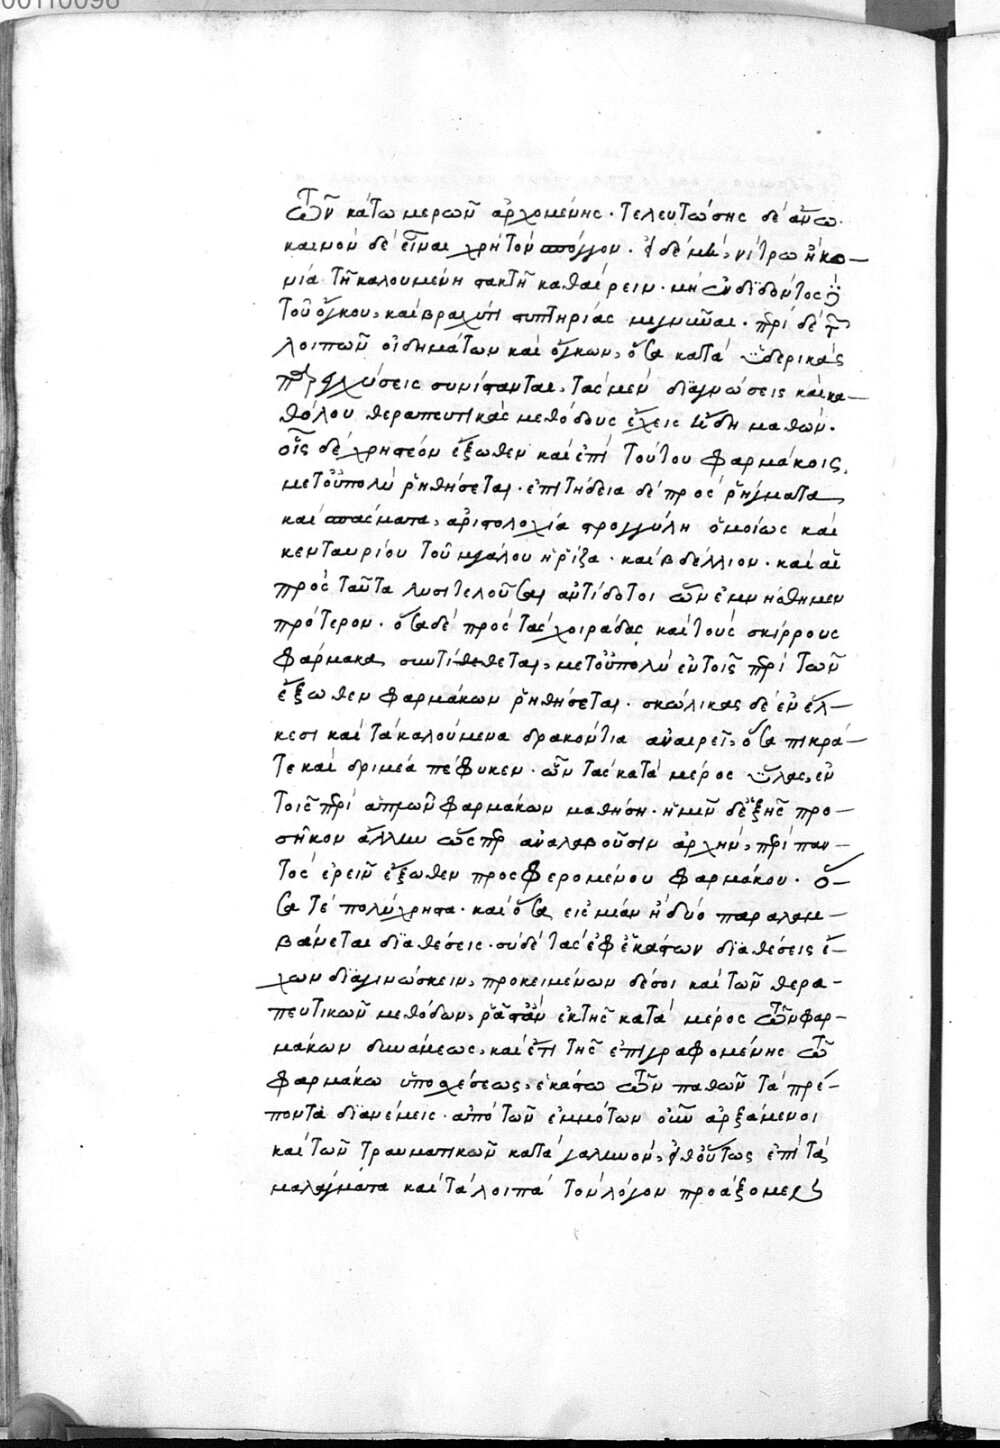 00110096
τῶν κάτω μερῶν ἀρχομένης· τελευτώσης δὲ ἄνω.
καινὸν δὲ εἶναι χρὴ τὸν σπόγγον. εἰ δὲ μὴ, νίτρω ἢ κο–
νία τῆ καλουμένη στακτῆ καθαίρειν. μὴ ἐνδιδόντος δὲ
τοῦ ὄγκου, καὶ βραχύ τι στυπτηρίας μιγνῦναι. περὶ δὲ τῶν
λοιπῶν οἰδημάτων καὶ ὄγκων, ὅσα κατὰ ὑδερικὰς
παρεγχύσεις συνίστανται, τὰς μὲν διαγνώσεις καὶ κα–
θόλου θεραπευτικὰς μεθόδους ἔχεις ἤδη μαθών.
οἷς δὲ χρηστέον ἔξωθεν καὶ ἐπὶ τούτου φαρμάκοις,
μετοὐπολὺ ῥηθήσεται. ἐπιτήδεια δὲ πρὸς ῥήγματα
καὶ σπάσματα, ἀριστολοχία στρογγύλη ὁμοίως καὶ
κενταυρίου τοῦ μεγάλου ἡ ῥίζα. καὶ βδέλλιον. καὶ αἱ
πρὸς ταῦτα λυσιτελοῦσαι ἀντίδοτοι ὧν ἐμνήσθημεν
πρότερον. ὅσα δὲ πρὸς τὰς χοιράδας καὶ τοὺς σκίρρους
φάρμακα συντίθεται, μετοὐπολὺ ἐν τοῖς περὶ τῶν
ἔξωθεν φαρμάκων ῥηθήσεται. σκώλικας δὲ ἐν ἕλ–
κεσι καὶ τὰ καλούμενα δρακόντια ἀναιρεῖ, ὅσα πικρά–
τε καὶ δριμέα πέφυκεν. ὧν τὰς κατὰ μέρος ὕλας, ἐν
τοῖς περὶ ἁπλῶν φαρμάκων μαθήση. ἡμῖν δὲ ἑξῆς προ–
σῆκον ἄλλην ὥσπερ ἀναλαβοῦσιν ἀρχὴν, περὶ παν–
τὸς ἐρεῖν ἔξωθεν προσφερομένου φαρμάκου. ὅ–
σα τὲ πολύχρηστα. καὶ ὅσα εἰς μίαν ἢ δύο παραλαμ–
βάνεται διαθέσεις. σὺ δὲ τὰς ἐφ ἑκάστων διαθέσεις ἔ–
χων διαγινώσκειν, προκειμένων δέσοι καὶ τῶν θερα–
πευτικῶν μεθόδων, ῥᾶστἂν ἐκ τῆς κατὰ μέρος τῶν φαρ–
μάκων δυνάμεως, καὶ ἔτι τῆς ἐπιγραφομένης τῶ
φαρμάκω ὑποσχέσεως, ἑκάστω τῶν παθῶν τὰ πρέ–
ποντα διανέμεις. ἀπὸ τῶν ἐμμότων οὖν ἀρξάμενοι
καὶ τῶν τραυματικῶν καταγαληνόν, εἶθοὕτως ἐπὶ τὰ
μαλάγματα καὶ τὰ λοιπὰ τὸν λόγον προάξομεν